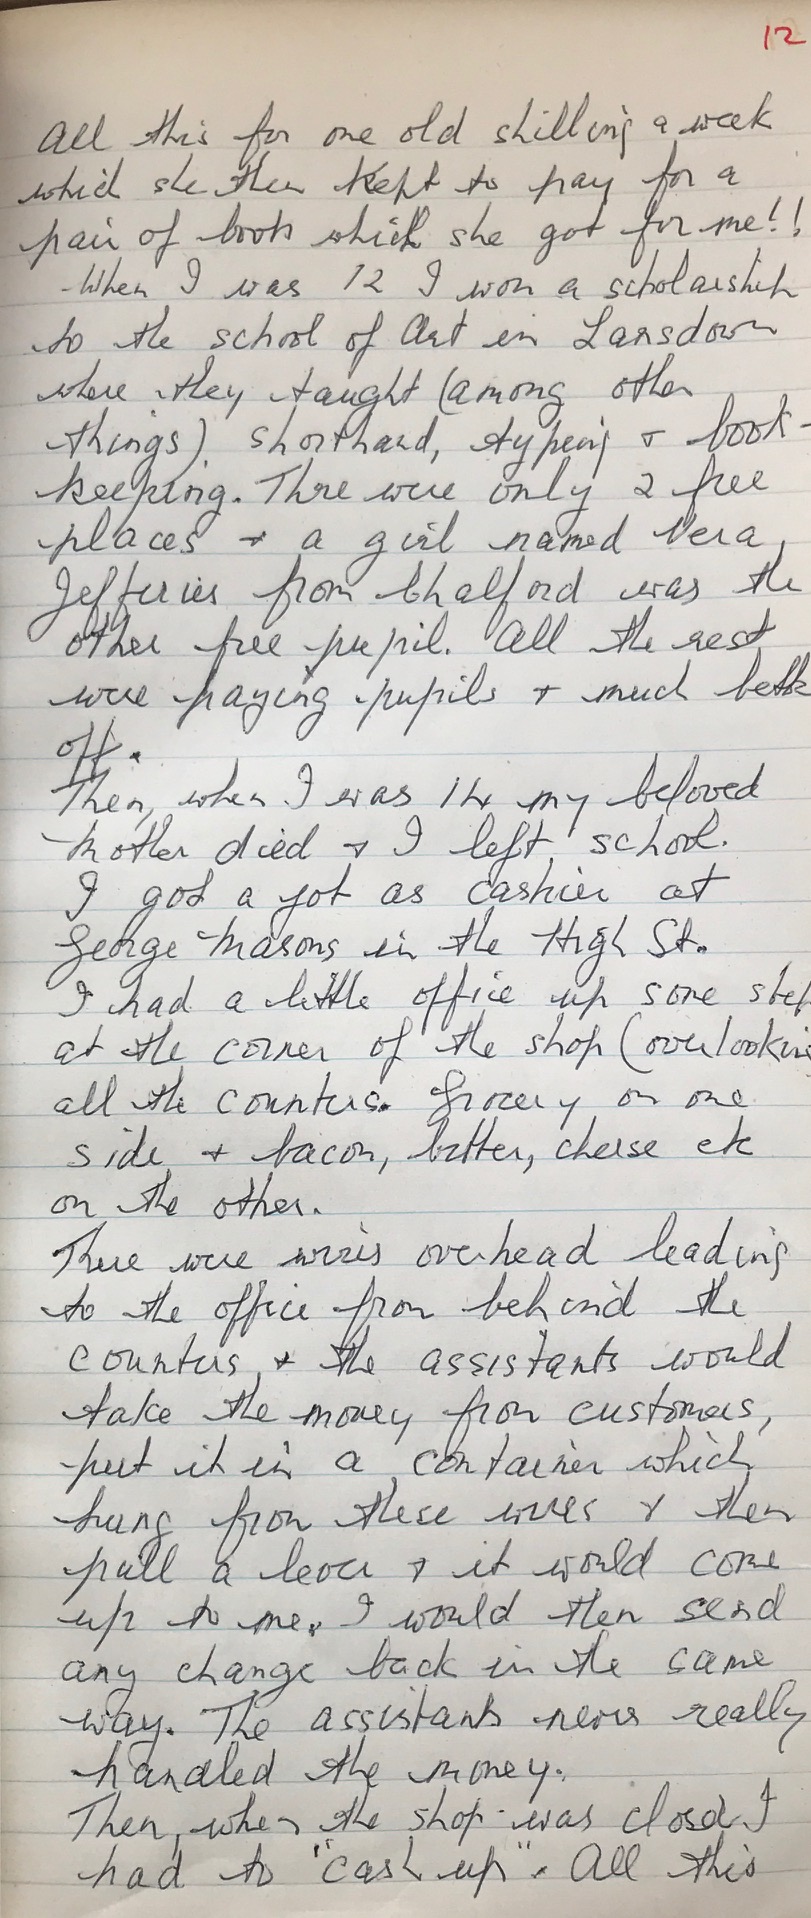 12
All this for one old shilling a week
which she then kept to pay for a
pair of boots which she got for me!!
When I was 12 I won a scholarship
to the school of Art in Lansdown
where they taught (among other
things) shorthand, typeing & book-
keeping. Thre were only 2 free
places & a girl named Vera
Jefferies from Chalford was the
other free pupil. All the rest
were paying pupils & much bette
off.
Then, when I was 14 my beloved
Mother died & I left school.
I got a jot as cashier at
George Masons in the High St.
I had a little office up some step
at the corner of the shop (overlookin
all the counters. Grocery on one
side & bacon, butter, cheese etc
on the other.
There were wires overhead leading
to the office from behind the
counters & the assistants would
take the money from customers,
put it in a container which
hung from these wires & then
pull a lever & it would come
up to me. I would then send
any change back in the same
way. The assistants never really
handled the money.
Then, when the shop was closed I
had to "cash up". All this